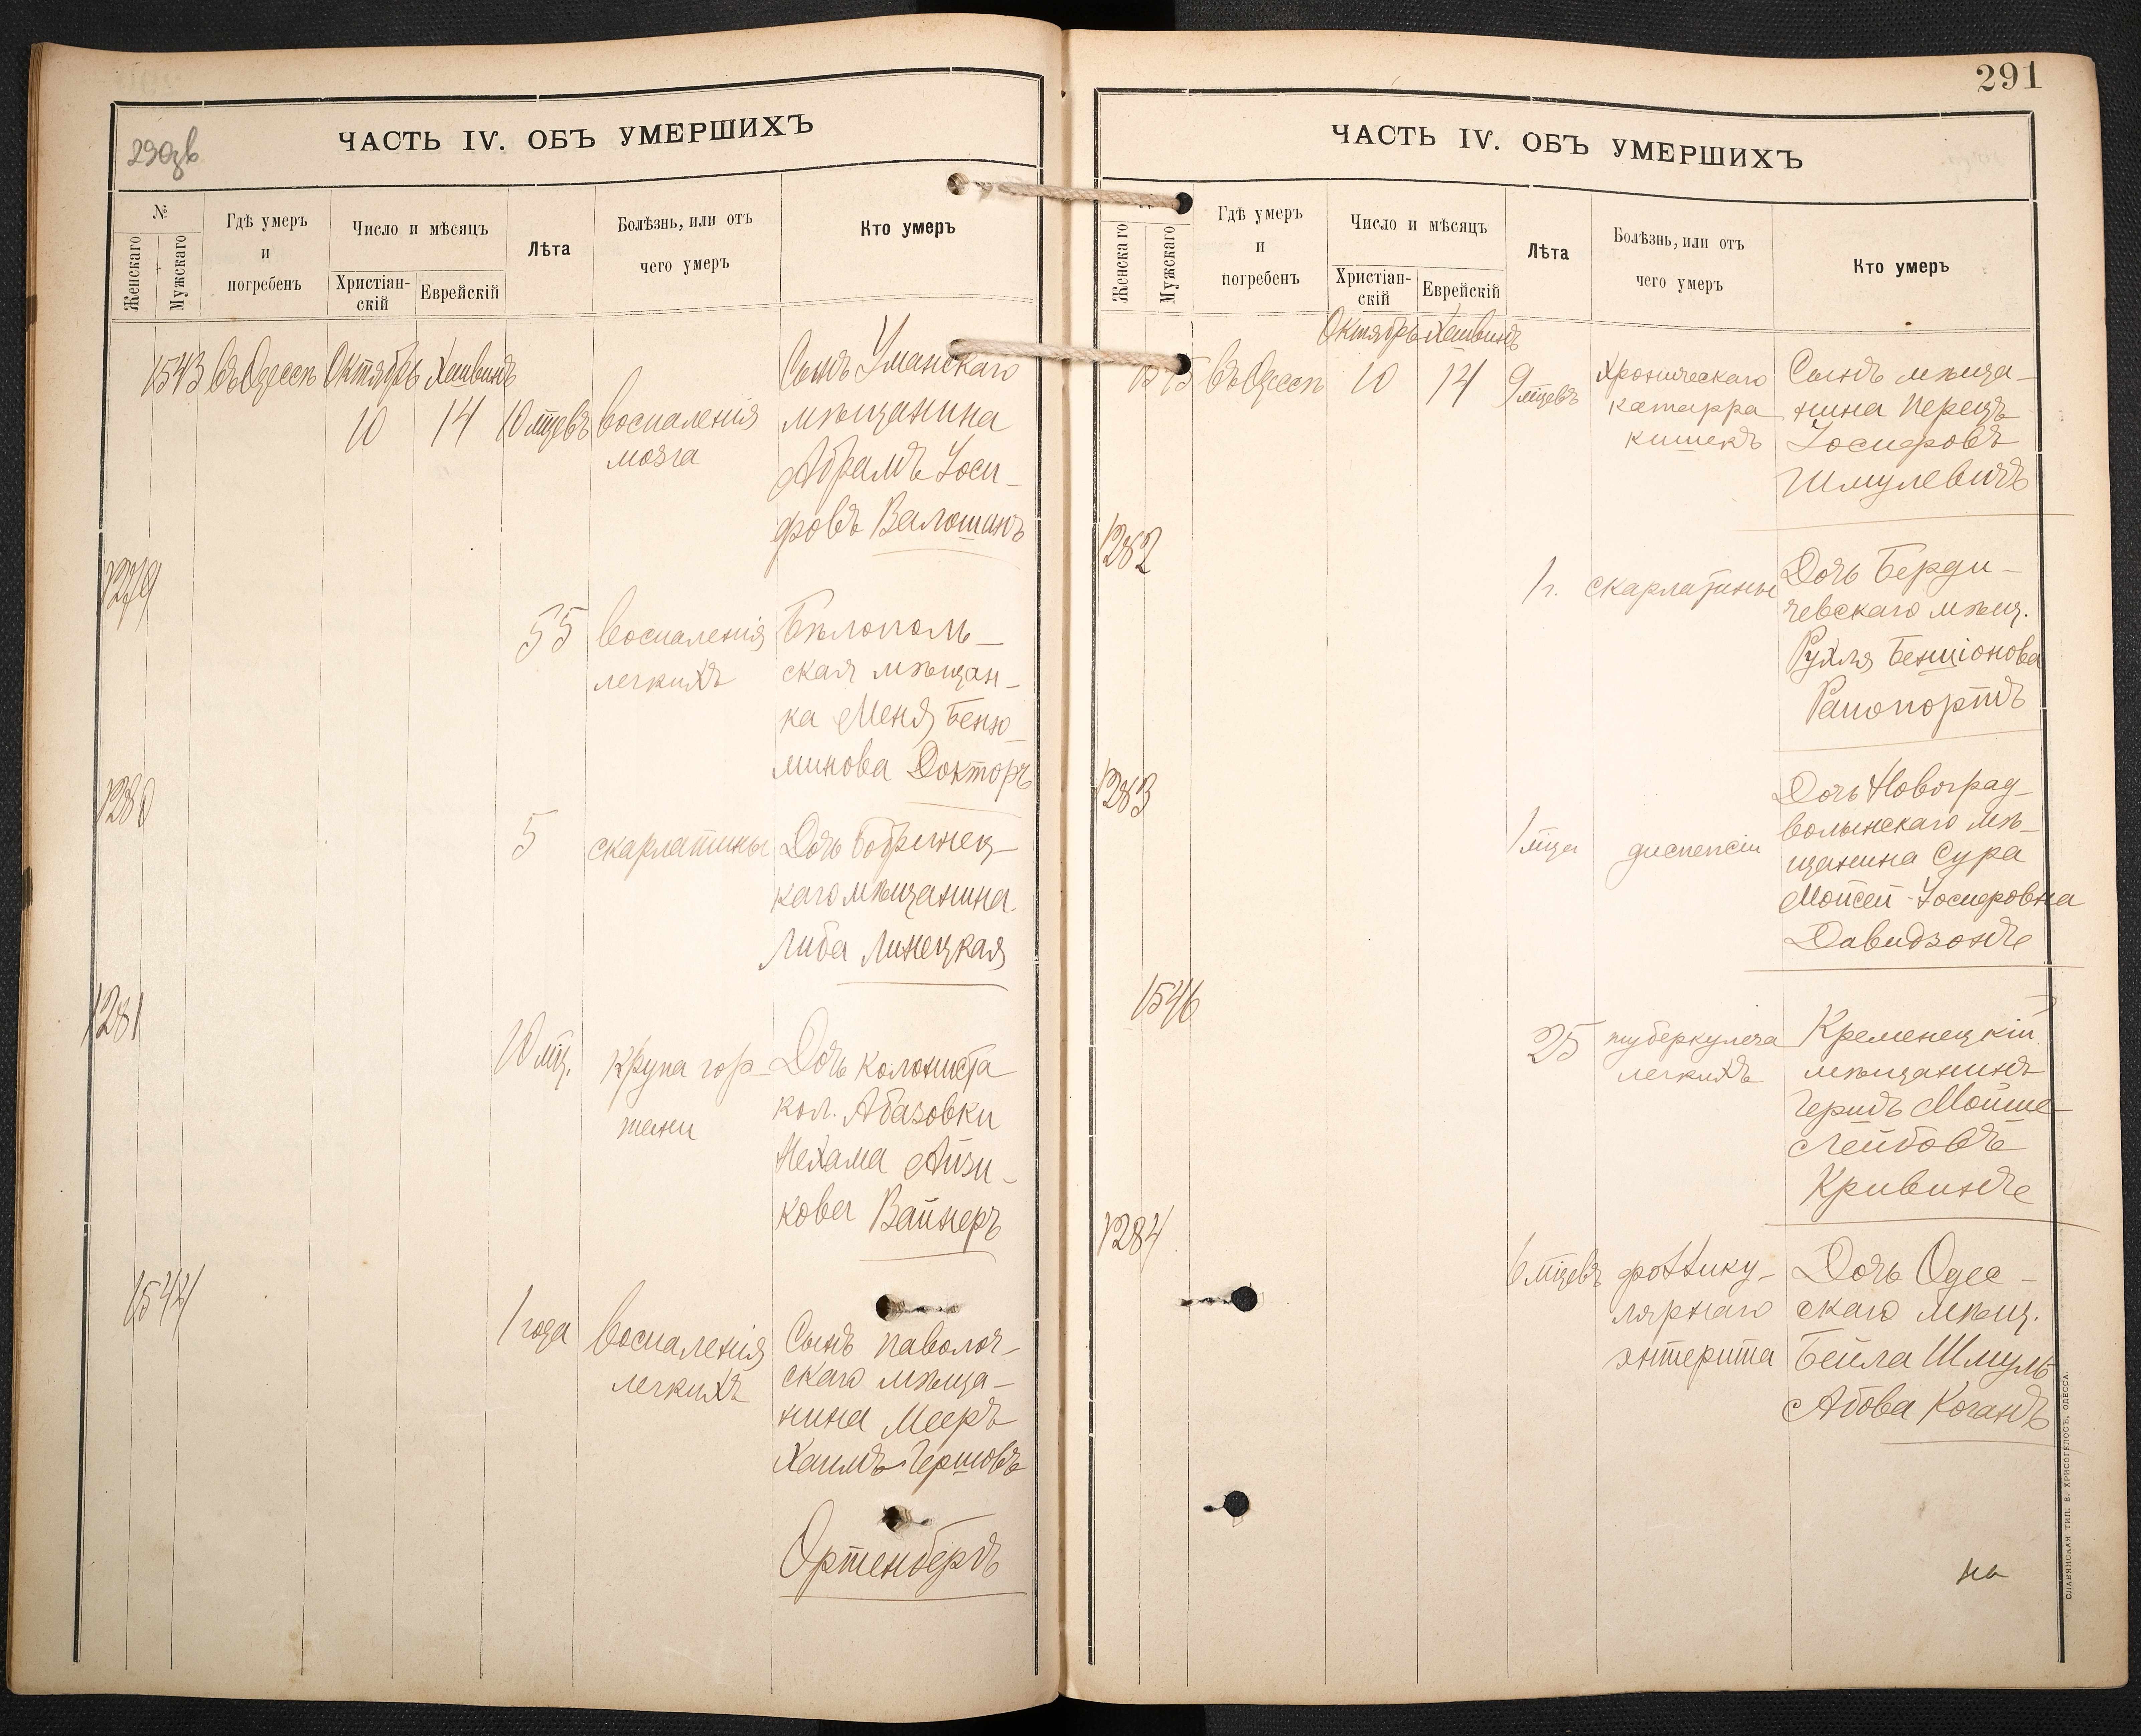 290зв
ЧАСТЬ IV. ОБЪ УМЕРШИХЪ
№
Женскаго
Мужскаго
Гдѣ умеръ
и
погребенъ
Число и мѣсяцъ
Христіан-
скій
Еврейскій
Лѣта
Болѣзнь, или отъ
чего умеръ
Кто умеръ
1543 въ Одессѣ Октябрь Хешвинъ
10 14 10 мцевъ
воспаленія
мозга
Сынъ Уманскаго
мѣщанина
Абрамъ Іоси-
фовъ Валошинъ
1279
55
воспаленія
легкихъ
Бѣлополь-
ская мѣщан-
ка Меня Беню-
минова Докторъ
1280
5
скарлатины
Дочь Бобринец-
каго мѣщанина
Либа Линецкая
1281
10 мц.
Крупа гор-
тани
Дочь колониста
кол. Абазовки
Нехама Айзи-
кова Вайнеръ
1544
1 года
воспаленія
легкихъ
Сынъ паволоч-
скаго мѣща-
нина Мееръ
Хаимъ-Гершовъ
Ортенбергъ
291
ЧАСТЬ IV. ОБЪ УМЕРШИХЪ
Женскаго
Мужскаго
Гдѣ умеръ
и
погребенъ
Число и мѣсяцъ
Христіан-
скій
Еврейскій
Лѣта
Болѣзнь, или отъ
чего умеръ
Кто умеръ
Октябрь Хешвинъ
1545 въ Одессѣ 10 14 9 мцевъ
Хроническаго
катарра
кишекъ
Сынъ мѣща-
нина Перецъ
Іосифовъ
Шмулевичъ
1282
1 г.
скарлатины
Дочь Берди-
чевскаго мѣщ.
Рухля Бенціонова
Рапопортъ
1283
1 мца
диспепсіи
Дочь Новоград-
волынскаго мѣ-
щанина Сура
Мойсей-Іосифовна
Давидзонъ
1546
25
туберкулеза
легкихъ
Кременецкій
мѣщанинъ
Гершъ Мойше-
Лейбовъ
Кривинъ
1284
6 мцевъ
фоллику-
лярнаго
энтерита
Дочь Одес-
скаго мѣщ.
Бейла Шмуль
Абова Коганъ
СЛАВЯНСКАЯ ТИП. Е. ХРИСОГЕЛОСЪ, ОДЕССА.